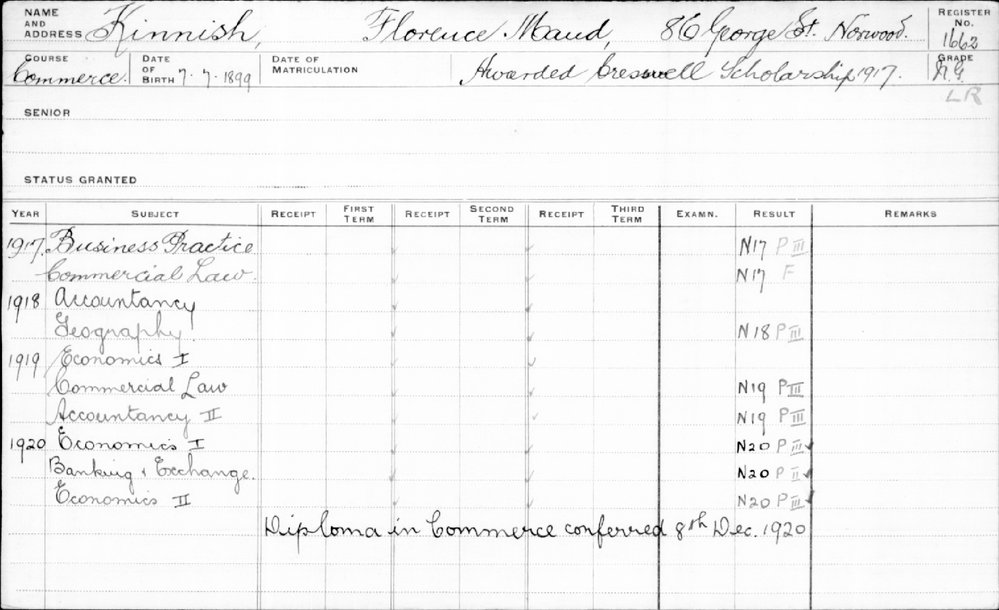 NAME AND ADDRESS Kinnish, Florence Maud, 86 George St. Norwood. REGISTER No. 1662
COURSE Commerce. DATE OF BIRTH 7.7.1899 DATE OF MATRICULATION Awarded Cresswell Scholarship 1917. GRADE N.G.
LR
SENIOR
STATUS GRANTED
YEAR SUBJECT RECEIPT FIRST TERM RECEIPT SECOND TERM RECEIPT THIRD TERM EXAMN. RESULT REMARKS
1917 Business Practice ✓ ✓ N17 P III
Commercial Law. ✓ ✓ N17 F
1918 Accountancy ✓ ✓
Geography ✓ ✓ N18 P III
1919 Economics I ✓ ✓
Commercial Law ✓ ✓ N19 P III
Accountancy II ✓ ✓ N19 P III
1920 Economics I ✓ ✓ N20 P III ✓
Banking & Exchange. ✓ ✓ N20 P II ✓
Economics II ✓ ✓ N20 P III ✓
Diploma in Commerce conferred 8th Dec. 1920